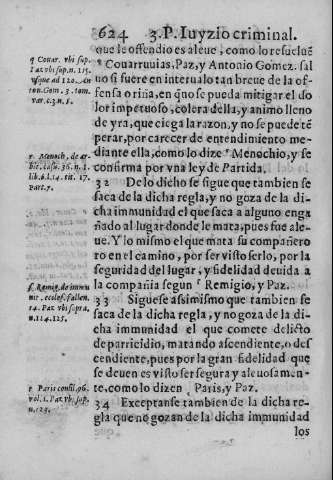 624 3.P. Iuyzio criminal.
que le offendio es aleue, como lo resuluẽ
q Couar. vbi sup.
Paz vbi sup. n. 115.
vsque ad 120. An
ton. Gom. 3. tom.
var. c. 3. n. 5.
q Couarruuias, Paz, y Antonio Gomez. sal
uo si fuere en interualo tan breue de la of-
fensa o riña, en q̃ no se pueda mitigar el do
lor impetuoso, colera della, y animo lleno
de yra, que ciega la razon, y no se puede tẽ
perar, por carecer de entendimiento me-
r. Menoch, de ar-
bit. casu. 36. n. 1.
lib. 6. l. 14. tit. 17.
Part. 7.
diante ella, como lo dize r Menochio, y se
confirma por vna ley de Partida.
32 De lo dicho se sigue que tambien se
saca de la dicha regla, y no goza de la di-
cha immunidad el que saca a alguno enga
ñado al lugar donde le mata, pues fue ale-
ue. Y lo mismo el que mata su compañero
ro en el camino, por ser visto serlo, por la
seguridad del lugar, y fidelidad deuida a
s. Remig. de immu
nit. eccles. fallen.
14. Paz vbi supra,
n. 124. 125.
la compañia segun s Remigio, y Paz.
33 Siguese assimismo que tambien se
saca de la dicha regla, y no goza de la di-
cha immunidad el que comete delicto
de parricidio, matando ascendiente, o des
cendiente, pues por la gran fidelidad que
se deuen es visto ser segura y aleuosamen-
t Paris consil. 96.
vol. 1. Paz vbi sup.
n. 123.
te, como lo dizen t Paris, y Paz.
34 Exceptanse tambien de la dicha re-
gla que no gozan de la dicha immunidad
los